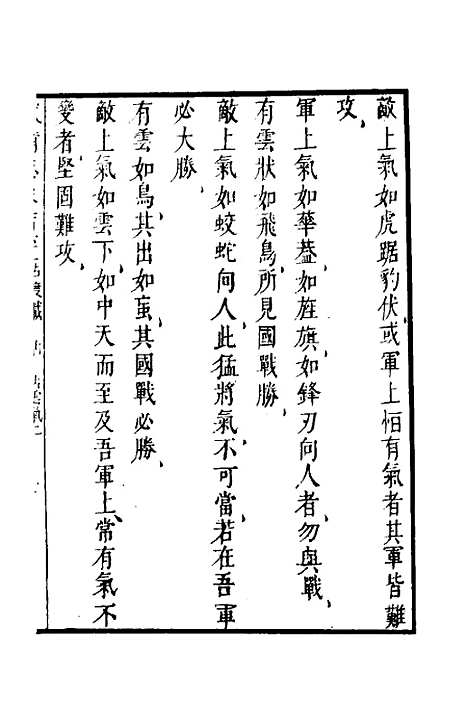 敵上氣如虎踞豹伏或軍上恒有氣者其軍皆難
攻、
軍上氣如華蓋、如旌旗如鋒刃向人者、勿與戰、
有雲狀如飛鳥、所見國戰勝、
敵上氣如蛟蛇向人、此猛將氣、不可當、若在吾軍
必大勝、
有雲如鳥、其出如䖝、其國戰必勝、
敵上氣如雲下、如中天而至及吾軍上、常有氣不
變者、堅固難攻、